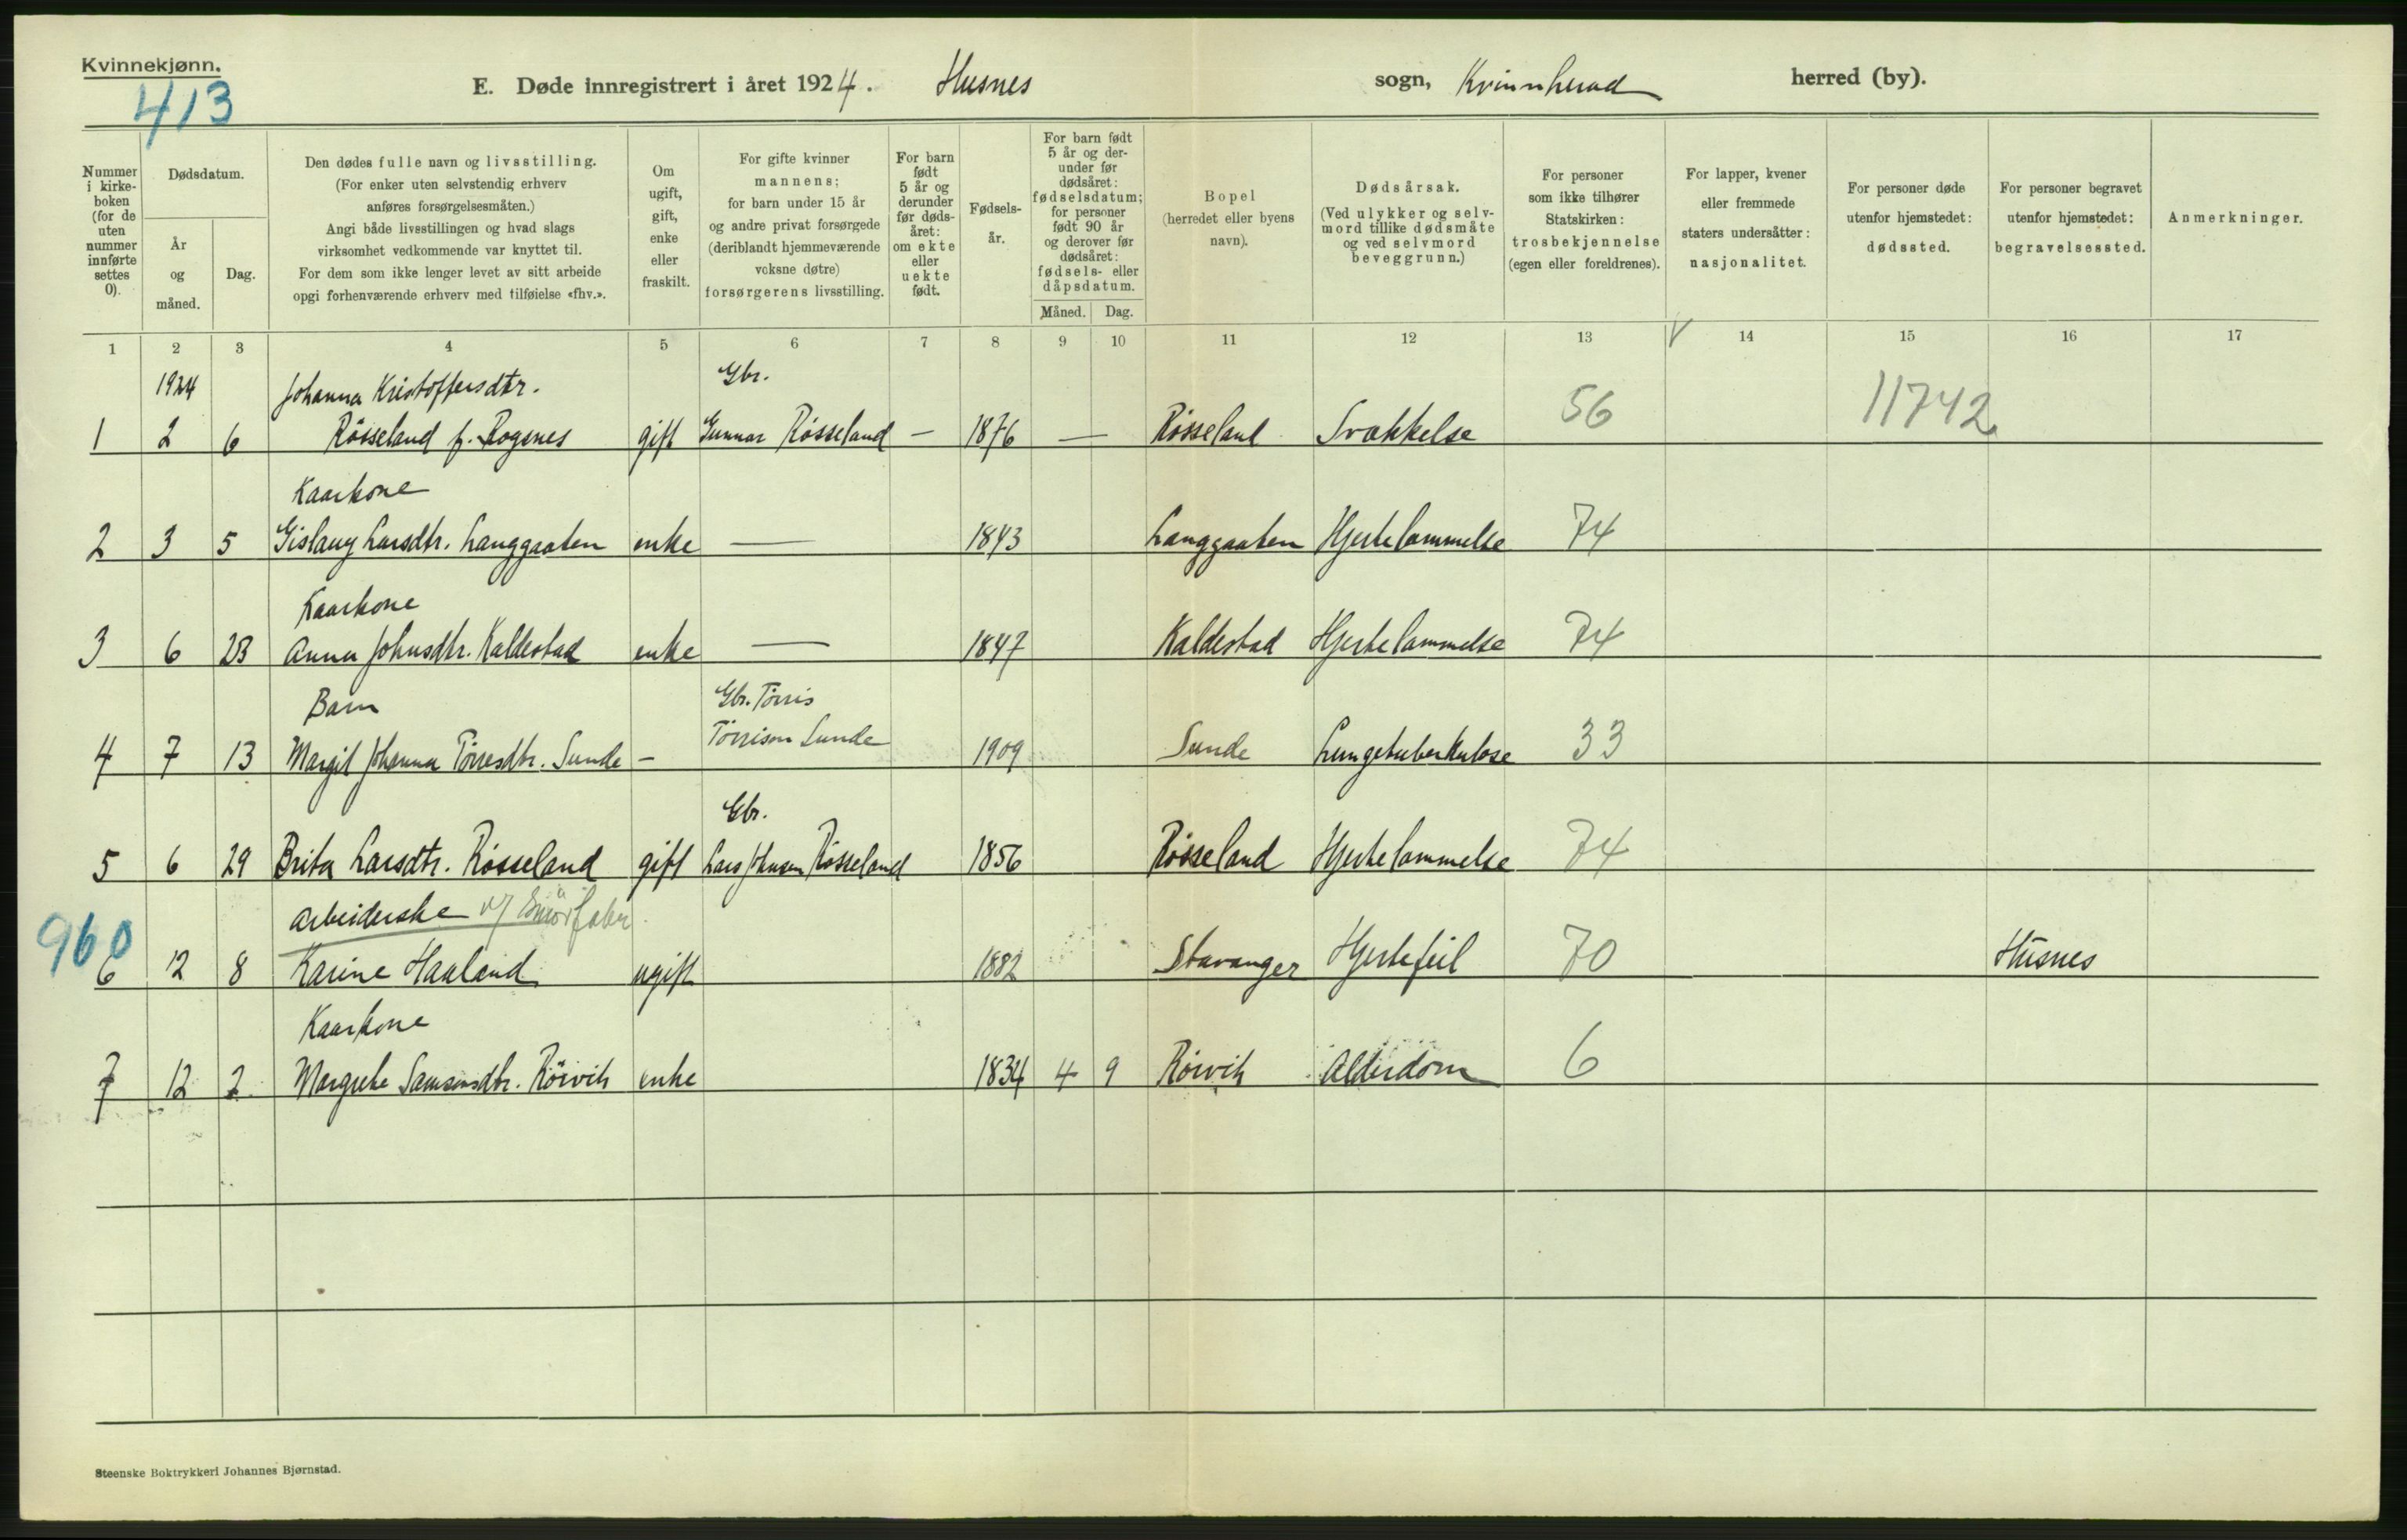 Kvinnekjønn.
413
E. Døde innregistrert i året 1924. Husnes sogn, Kvinnherad herred (by).
Nummer i kirke-boken (for de uten nummer innførte settes 0).
Dødsdatum.
År og måned.
Dag.
Den dødes fulle navn og livsstilling.
(For enker uten selvstendig erhverv anføres forsørgelsesmåten.)
Angi både livsstillingen og hvad slags virksomhet vedkommende var knyttet til.
For dem som ikke lenger levet av sitt arbeide opgi forhenværende erhverv med tilføielse «fhv.».
Om ugift, gift, enke eller fraskilt.
For gifte kvinner mannens; for barn under 15 år og andre privat forsørgede (deriblandt hjemmeværende voksne døtre) forsørgerens livsstilling.
For barn født 5 år og derunder før døds-året: om ekte eller uekte født.
Fødsels-år.
For barn født 5 år og der-under før dødsåret: fødselsdatum; for personer født 90 år og derover før dødsåret: fødsels- eller dåpsdatum.
Måned. Dag.
Bopel (herredet eller byens navn).
Dødsårsak.
(Ved ulykker og selv-mord tillike dødsmåte og ved selvmord beveggrunn.)
For personer som ikke tilhører Statskirken: trosbekjennelse (egen eller foreldrenes).
For lapper, kvener eller fremmede staters undersåtter: nasjonalitet.
For personer døde utenfor hjemstedet: dødssted.
For personer begravet utenfor hjemstedet: begravelsessted.
Anmerkninger.
1 2 3 4 5 6 7 8 9 10 11 12 13 V 14 15 16 17
1924 Johanna Kristoffersdtr. Gbr.
1 2 6 Røsseland f. Rogsnes gift Gunnar Røsseland — 1876 — Røsseland Svækkelse 56 11742
Kaarkone
2 3 5 Gislaug Larsdtr. Langgaaten enke — 1843 Langgaaten Hjertelammelse 74
Kaarkone
3 6 23 Anna Johnsdtr. Kaldestad enke — 1847 Kaldestad Hjertelammelse 74
Barn Gbr. Tørris
4 7 13 Margit Johanna Tørresdtr. Sunde - Tørrisen Sunde 1909 Sunde Lungetuberkulose 33
Gbr.
5 6 29 Brita Larsdtr. Røsseland gift Lars Johnsen Røsseland 1856 Røsseland Hjertelammelse 74
arbeiderske
960
6 12 8 Karine Haaland ugift 1882 Stavanger Hjertefeil 70 Husnes
Kaarkone
7 12 2 Margrethe Samsonsdtr. Rörvik enke 1834 4 9 Rörvik Alderdom 6
Steenske Boktrykkeri Johannes Bjørnstad.